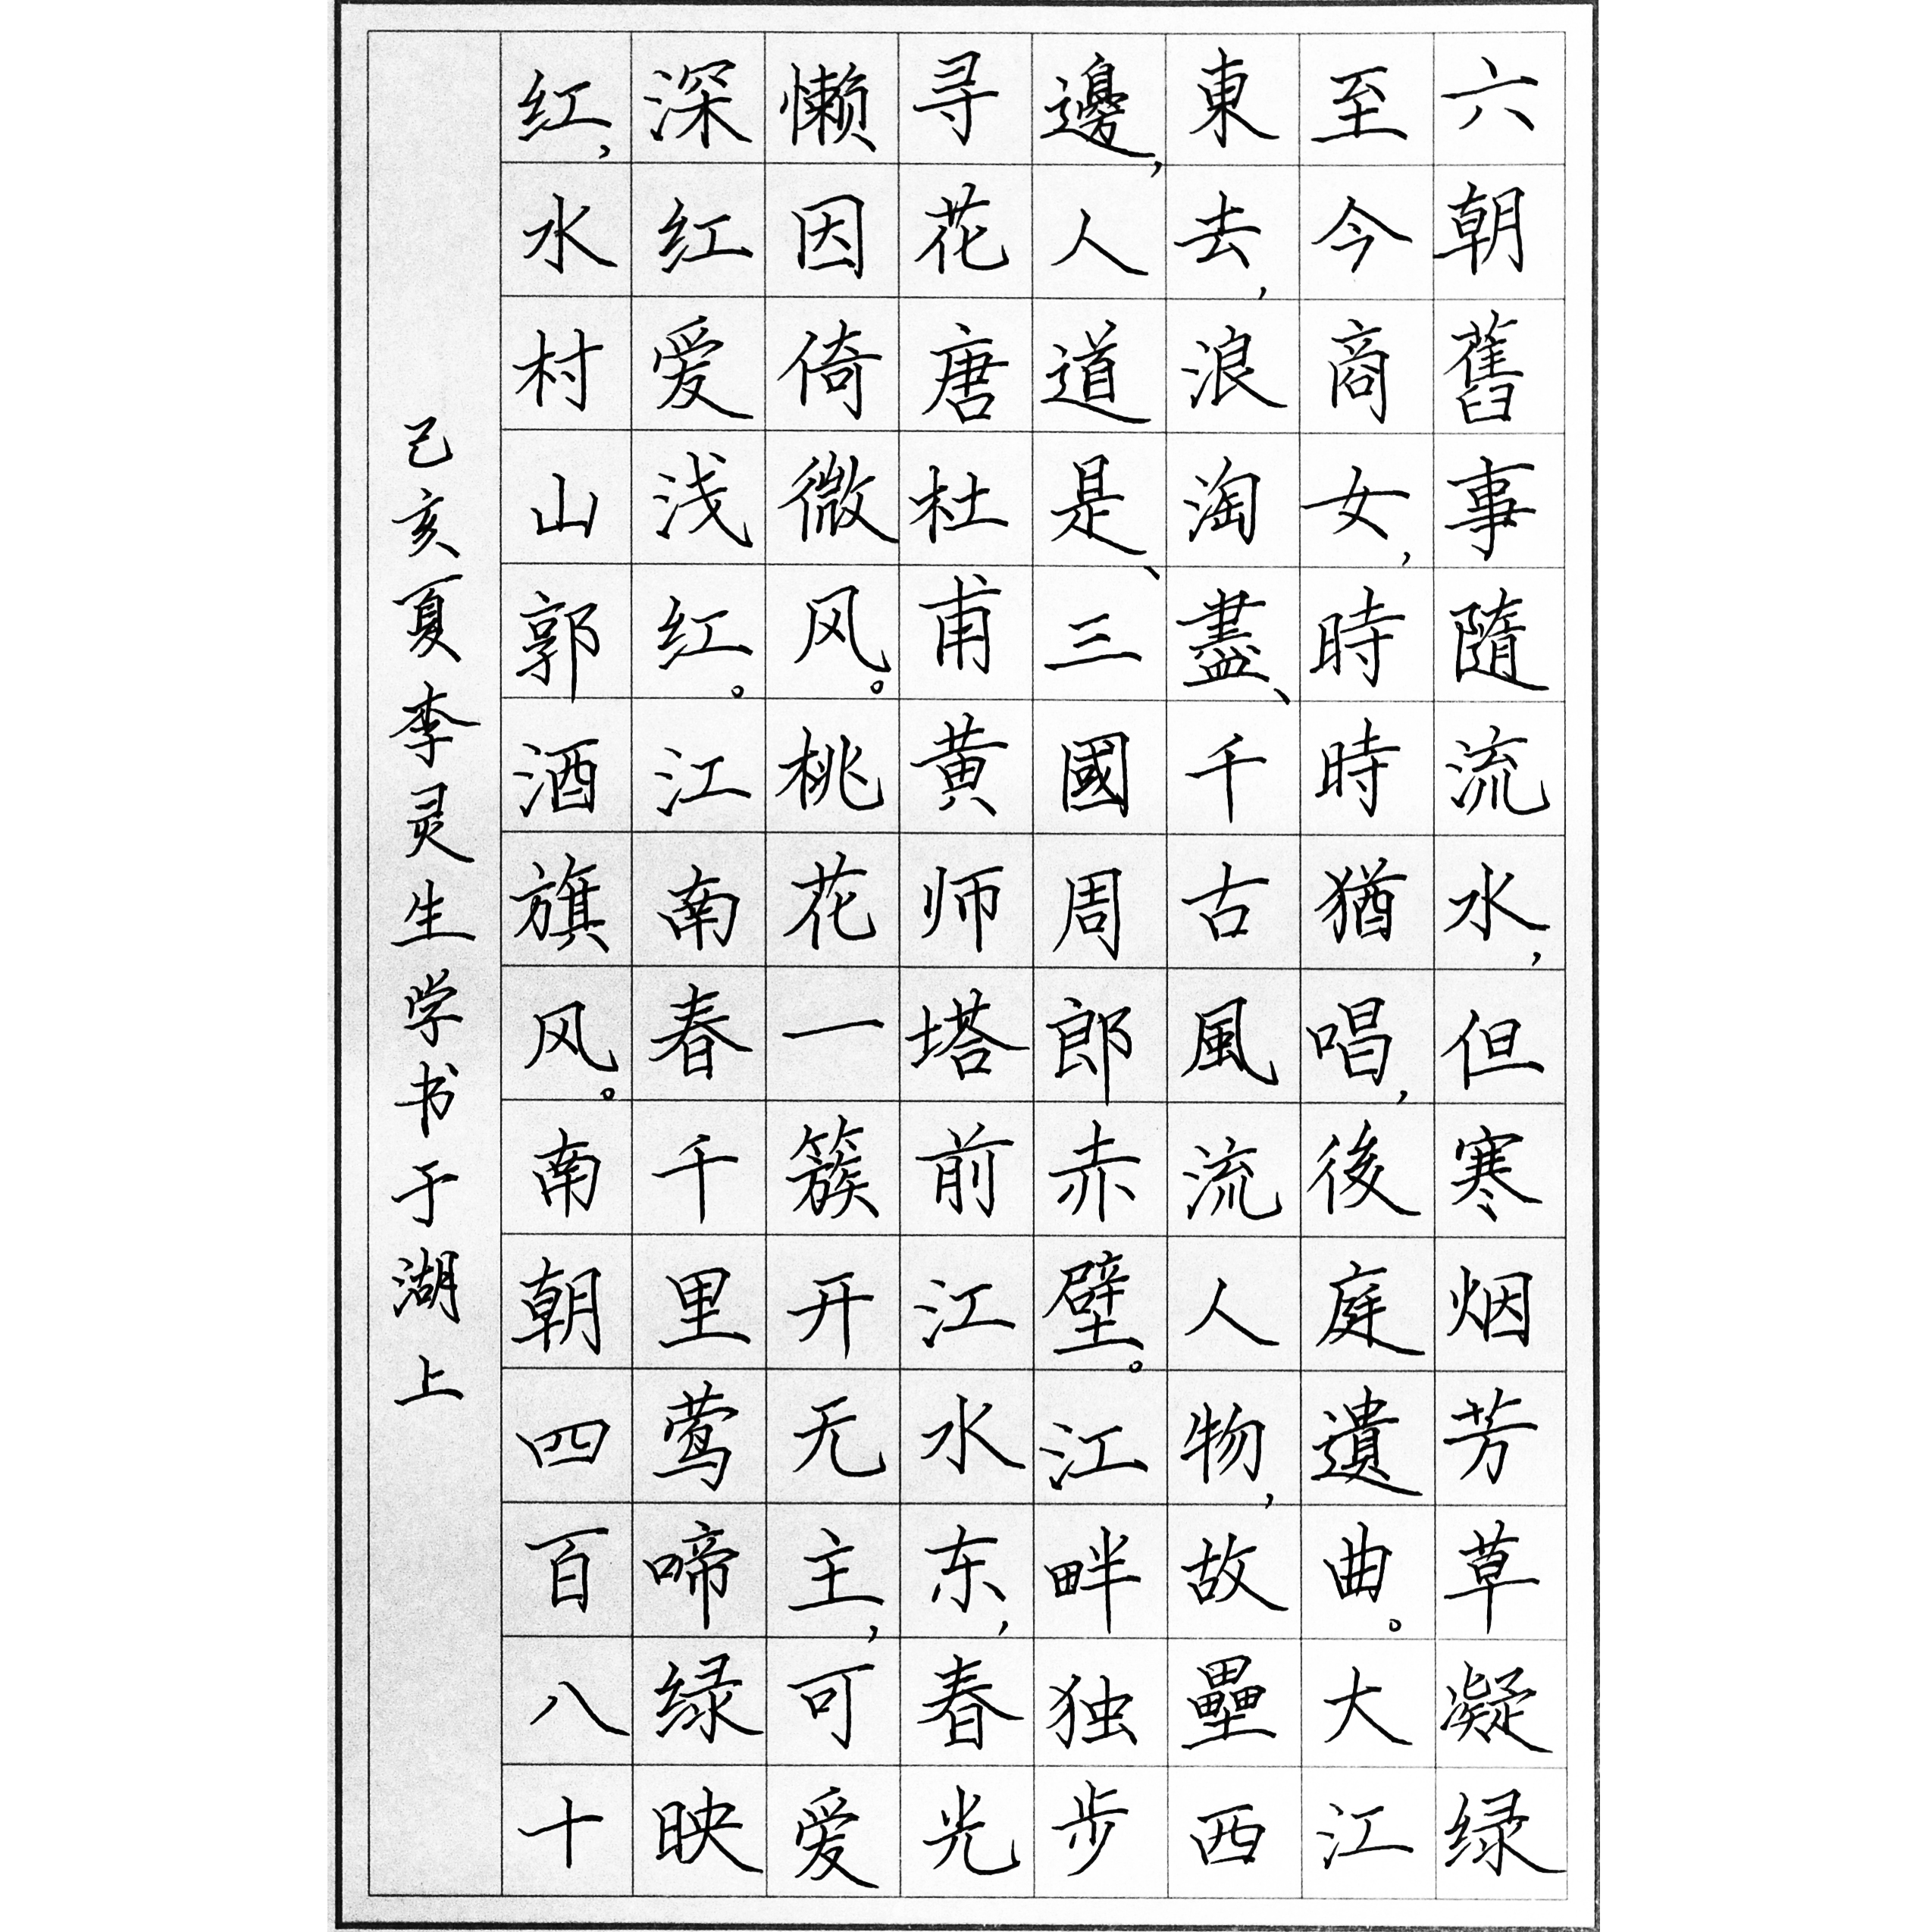 六朝舊事隨流水，但寒烟芳草凝绿
至今商女，時時猶唱，後庭遺曲。大江
東去，浪淘盡、千古風流人物，故壘西
邊，人道是、三國周郎赤壁。江畔独步
寻花唐杜甫黄师塔前江水东，春光
懒因倚微风。桃花一簇开无主，可爱
深红爱浅红。江南春千里莺啼绿映
红，水村山郭酒旗风。南朝四百八十
己亥夏李灵生学书于湖上